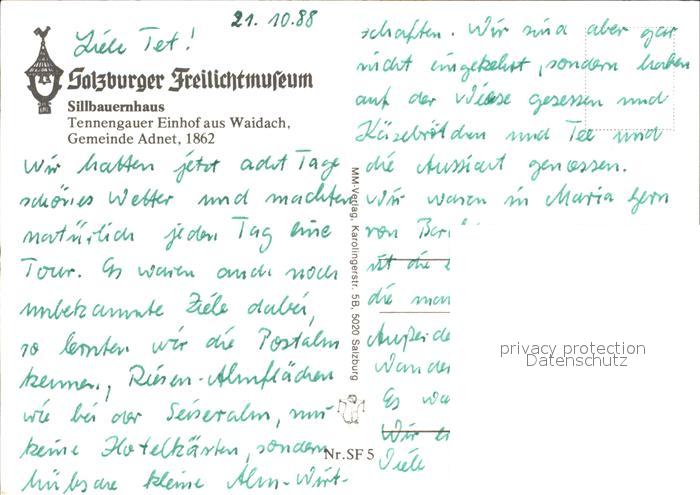 21. 10. 88
Liebe Tet!
Salzburger Freilichtmuseum
Sillbauernhaus
Tennengauer Einhof aus Waidach,
Gemeinde Adnet, 1862
Wir hatten jetzt acht Tage
schönes Wetter und machten
natürlich jeden Tag eine
Tour. Es waren auch noch
unbekannte Ziele dabei,
so lernten wir die Postalm
kennen, Riesen-Almflächen
wie bei der Seiseralm, nur
keine Hotelkästen, sondern
hübsche kleine Alm-Wirt-
Nr. SF 5
MM-Verlag, Karolingerstr. 5B, 5020 Salzburg
schaften. Wir sind aber gar
nicht eingekehrt, sondern haben
auf der Wiese gesessen und
Käsebrötchen und Tee und
die Aussicht genossen.
Wir waren in Maria Gern
von
ist die
die
Außerde
Wander
Es wa
Wir
Viele
privacy protection
Datenschutz